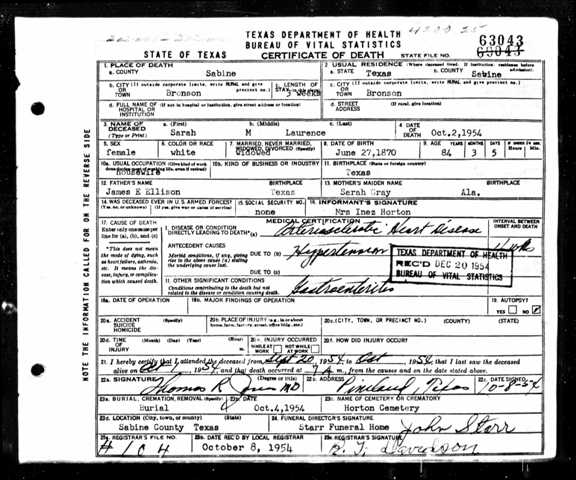 TEXAS DEPARTMENT OF HEALTH
BUREAU OF VITAL STATISTICS
STATE OF TEXAS CERTIFICATE OF DEATH STATE FILE NO. 63043
63043
1. PLACE OF DEATH 2. USUAL RESIDENCE (Where deceased lived. If institution: residence before admission)
a. COUNTY Sabine a. STATE Texas b. COUNTY Sabine
b. CITY (If outside corporate limits, write RURAL and give precinct no.) OR TOWN Bronson c. LENGTH OF STAY 3 weeks c. CITY (If outside corporate limits, write RURAL and give precinct no.) OR TOWN Bronson
d. FULL NAME OF (If not in hospital or institution, give street address or location) HOSPITAL OR INSTITUTION d. STREET ADDRESS (If rural, give location)
3. NAME OF DECEASED (Type or Print) a. (First) Sarah b. (Middle) M c. (Last) Laurence 4. DATE OF DEATH Oct.2,1954
5. SEX female 6. COLOR OR RACE white 7. MARRIED, NEVER MARRIED, WIDOWED, DIVORCED Widowed 8. DATE OF BIRTH June 27,1870 9. AGE 84 3 5
10a. USUAL OCCUPATION housewife 10b. KIND OF BUSINESS OR INDUSTRY 11. BIRTHPLACE (State or foreign country) Texas
12. FATHER'S NAME James E Ellison BIRTHPLACE Texas 13. MOTHER'S MAIDEN NAME Sarah Gray BIRTHPLACE Ala.
14. WAS DECEASED EVER IN U.S. ARMED FORCES? (Yes, no, or unknown) (If yes, give war or dates of service) 15. SOCIAL SECURITY NO. none 16. INFORMANT'S SIGNATURE Mrs Inez Horton
17. CAUSE OF DEATH MEDICAL CERTIFICATION INTERVAL BETWEEN ONSET AND DEATH
Enter only one cause per line for (a), (b), and (c)
I. DISEASE OR CONDITION DIRECTLY LEADING TO DEATH (a) Arteriosclerotic Heart Disease
ANTECEDENT CAUSES
*This does not mean the mode of dying, such as heart failure, asthenia, etc. It means the disease, injury, or complication which caused death.
Morbid conditions, if any, giving rise to the above cause (a) stating the underlying cause last.
DUE TO (b) Hypertension
DUE TO (c)
TEXAS DEPARTMENT OF HEALTH
REC'D DEC 20 1954
BUREAU OF VITAL STATISTICS
II. OTHER SIGNIFICANT CONDITIONS Gastroenteritis
Conditions contributing to the death but not related to the disease or condition causing death.
18a. DATE OF OPERATION 18b. MAJOR FINDINGS OF OPERATION 19. AUTOPSY? YES NO
20a. ACCIDENT SUICIDE HOMICIDE 20b. PLACE OF INJURY (e.g., in or about home, farm, factory, street, office bldg., etc.) 20c. (CITY, TOWN, OR PRECINCT NO.) (COUNTY) (STATE)
20d. TIME OF INJURY (Month) (Day) (Year) (Hour) 20e. INJURY OCCURRED WHILE AT WORK NOT WHILE AT WORK 20f. HOW DID INJURY OCCUR?
21. I hereby certify that I attended the deceased from Sept 20, 1954, to Oct 1954, that I last saw the deceased
alive on Oct 1, 1954 and that death occurred at 7 A m., from the causes and on the date stated above.
22a. SIGNATURE Thomas R. M.D. (Degree or title) 22b. ADDRESS Pineland, Texas 22c. DATE SIGNED 10-8-54
23a. BURIAL, CREMATION, REMOVAL (Specify) Burial 23b. DATE Oct.4,1954 23c. NAME OF CEMETERY OR CREMATORY Horton Cemetery
23d. LOCATION (City, town, or county) (State) Sabine County Texas 24. FUNERAL DIRECTOR'S SIGNATURE Starr Funeral Home John Starr
25a. REGISTRAR'S FILE NO. #104 25b. DATE REC'D BY LOCAL REGISTRAR October 8, 1954 25c. REGISTRAR'S SIGNATURE Davidson
NOTE THE INFORMATION CALLED FOR ON THE REVERSE SIDE